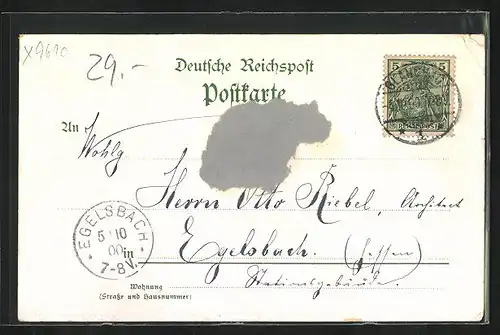 X9610
29.-
Deutsche Reichspost
Postkarte
5 5
REICHSPOST
An Wohlg
Herrn Otto Riebel, Architect
EGELSBACH
5 10
00
7-8V.
in Egelsbach. (Hessen)
Stationsgebäude.
Wohnung
(Straße und Hausnummer)